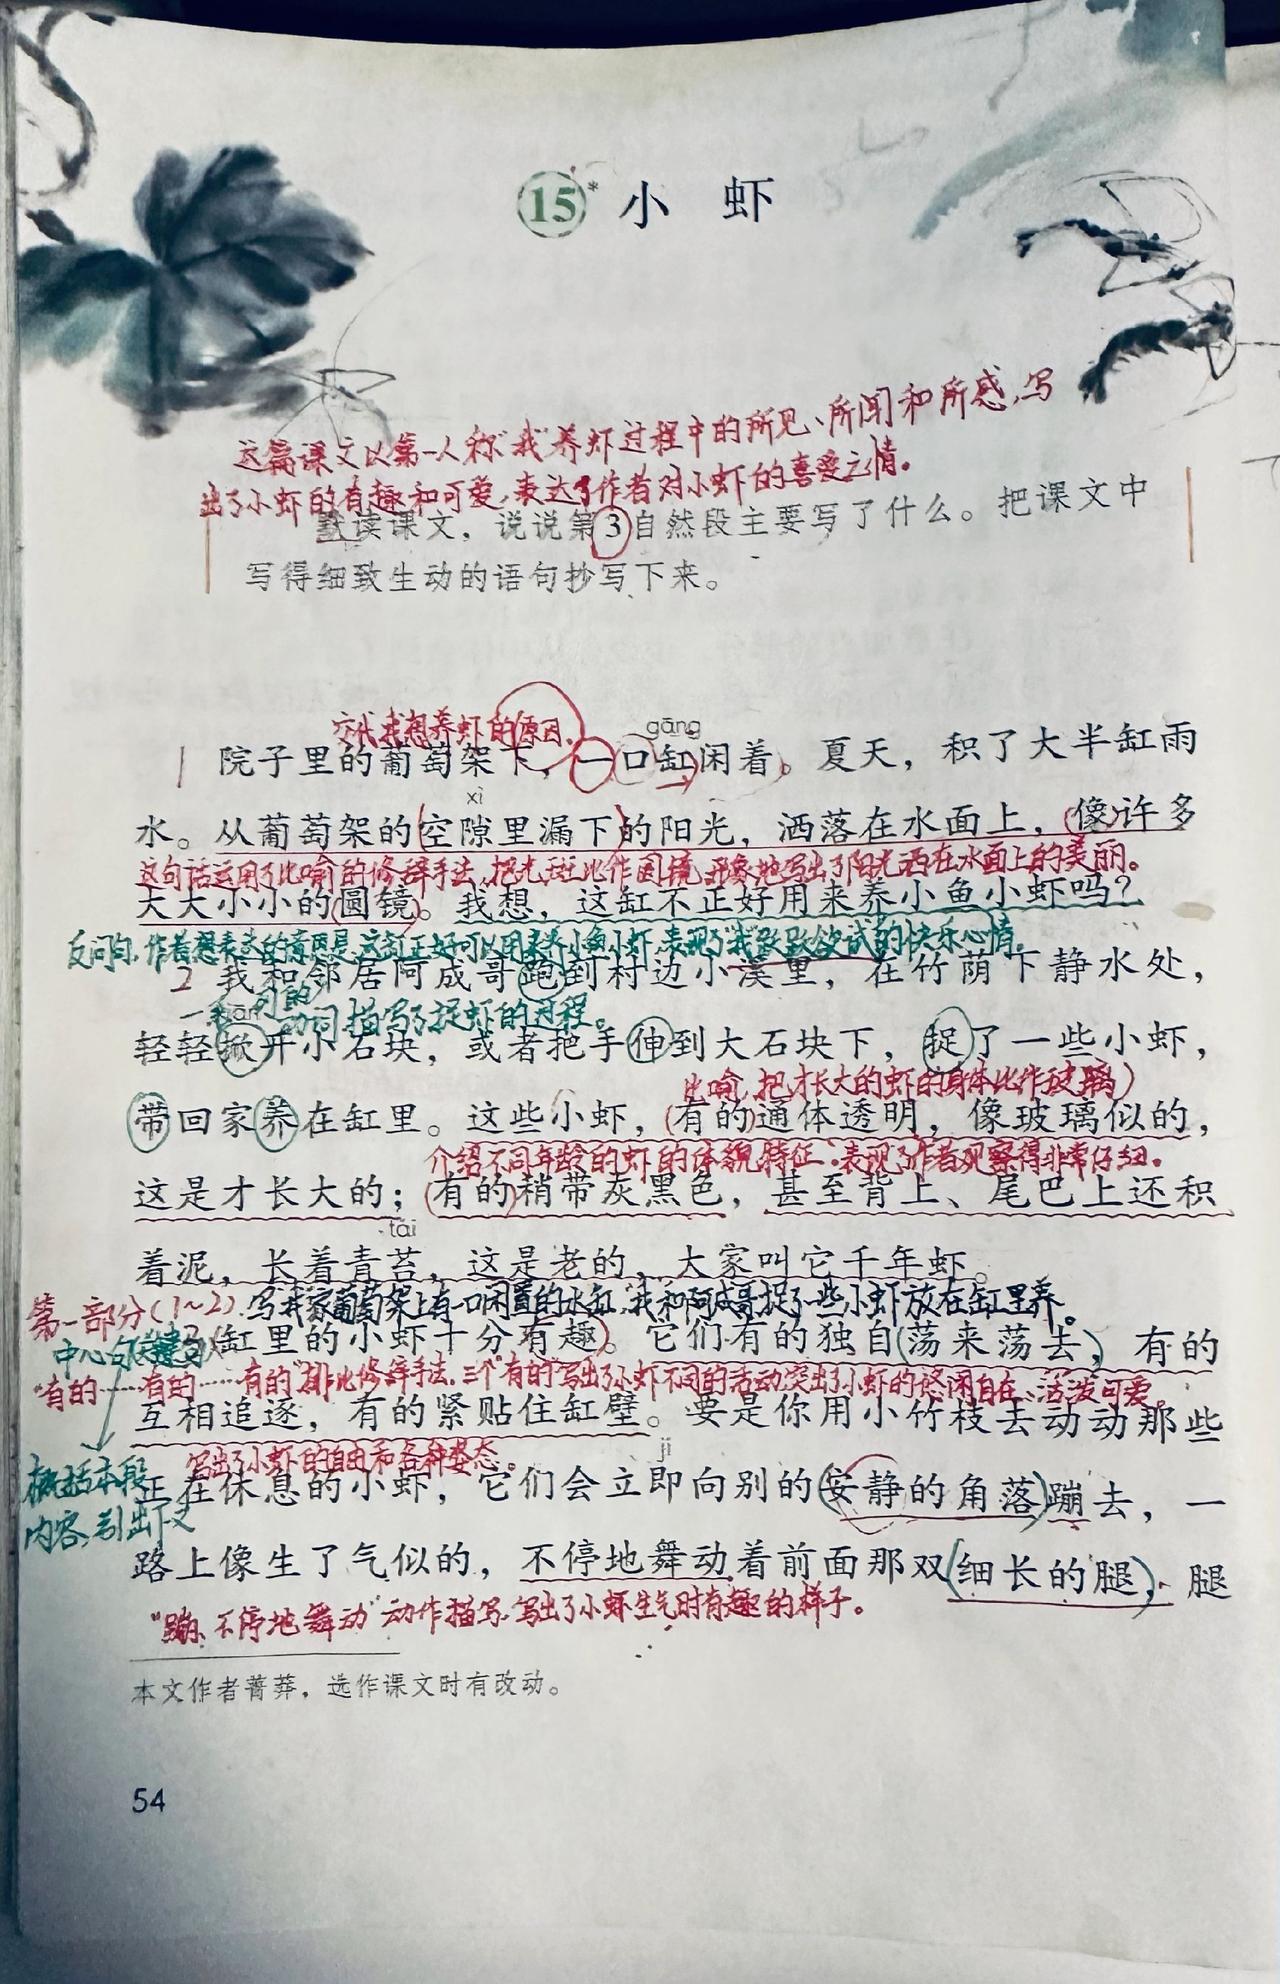 15* 小 虾
这篇课文以第一人称“我”养虾过程中的所见、所闻和所感,写
出了小虾的有趣和可爱,表达了作者对小虾的喜爱之情。
默读课文,说说第3自然段主要写了什么。把课文中
写得细致生动的语句抄写下来。
交代我想养虾的原因。
gāng
1 院子里的葡萄架下,一口缸闲着。夏天,积了大半缸雨
xì
水。从葡萄架的空隙里漏下的阳光,洒落在水面上,像许多
这句话运用了比喻的修辞手法,把光斑比作圆镜,形象地写出了阳光洒在水面上的美丽。
大大小小的圆镜。我想,这缸不正好用来养小鱼小虾吗?
反问句,作者想表达的意思是:这缸正好可以用来养小鱼小虾,表现了“我”跃跃欲试的快乐心情。
2 我和邻居阿成哥跑到村边小溪里,在竹荫下静水处,
一系列的动词描写了捉虾的过程。
轻轻掀开小石块,或者把手伸到大石块下,捉了一些小虾,
比喻,把才长大的虾的身体比作玻璃
带回家养在缸里。这些小虾,有的通体透明,像玻璃似的,
介绍不同年龄的虾的体貌特征,表现了作者观察得非常仔细。
这是才长大的;有的稍带灰黑色,甚至背上、尾巴上还积
tái
着泥,长着青苔,这是老的,大家叫它千年虾。
第一部分(1~2).写我家葡萄架上有一口闲置的水缸,我和阿成哥捉了一些小虾放在缸里养。
中心句
缸里的小虾十分有趣。它们有的独自荡来荡去,有的
“有的……有的……有的”排比修辞手法,三个“有的”写出了小虾不同的活动突出了小虾的悠闲自在、活泼可爱。
互相追逐,有的紧贴住缸壁。要是你用小竹枝去动动那些
写出了小虾的自由和各种姿态。
jí
正在休息的小虾,它们会立即向别的安静的角落蹦去,一
概括本段
内容,引出下文
路上像生了气似的,不停地舞动着前面那双细长的腿,腿
“蹦、不停地舞动”动作描写,写出了小虾生气时有趣的样子。
本文作者菁莽,选作课文时有改动。
54